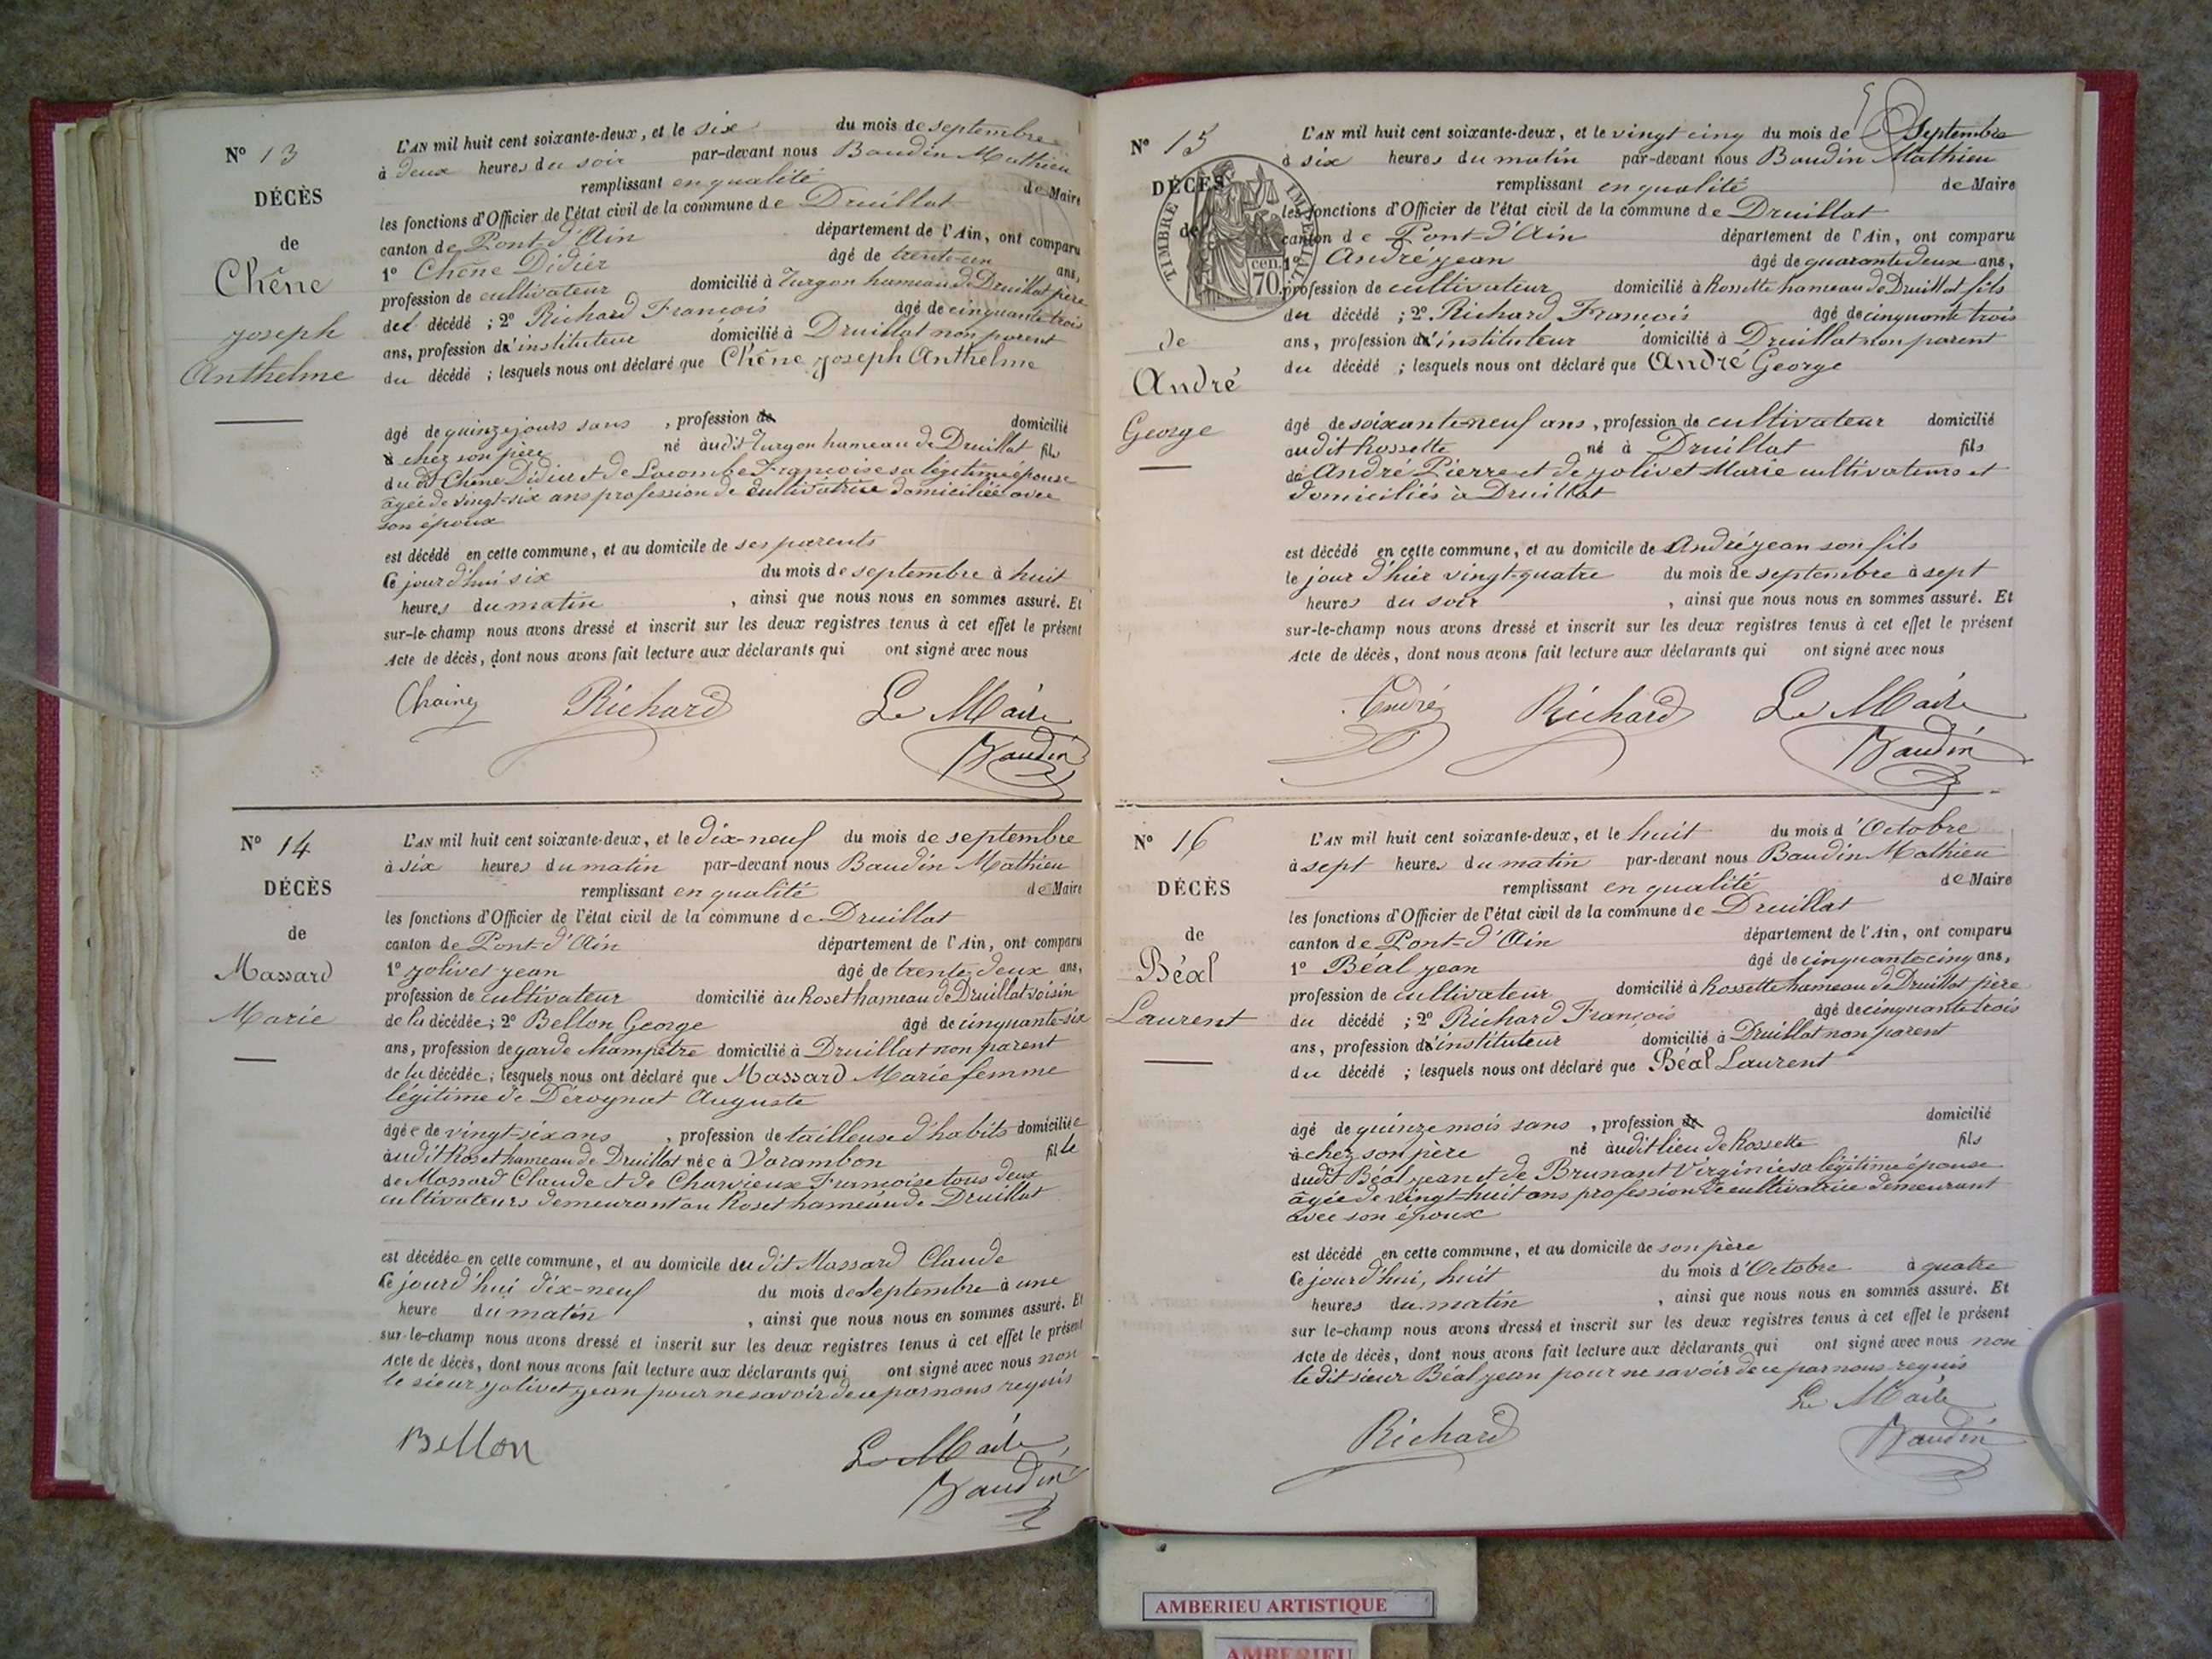 N° 13
DÉCÈS
de
Chêne
Joseph
Anthelme
L'AN mil huit cent soixante-deux, et le six du mois de septembre
à deux heures du soir par-devant nous Baudin Mathieu
remplissant en qualité de Maire
les fonctions d'Officier de l'état civil de la commune de Druillat
canton de Pont-d'Ain département de l'Ain, ont comparu
1° Chêne Didier âgé de trente-un ans,
profession de cultivateur domicilié à Turgon hameau de Druillat père
del décédé ; 2° Richard François âgé de cinquante trois
ans, profession d'instituteur domicilié à Druillat non parent
du décédé ; lesquels nous ont déclaré que Chêne Joseph Anthelme
âgé de quinze jours sans , profession de domicilié
à chez son père né audit Turgon hameau de Druillat fils
du dt Chêne Didier et de Lacombe Françoise sa légitime épouse
âgée de vingt-six ans profession de cultivatrice domiciliée avec
son époux
est décédé en cette commune, et au domicile de ses parents
Ce jourd'hui six du mois de septembre à huit
heures du matin , ainsi que nous nous en sommes assuré. Et
sur-le-champ nous avons dressé et inscrit sur les deux registres tenus à cet effet le présent
Acte de décès, dont nous avons fait lecture aux déclarants qui ont signé avec nous
Richard Le Maire
Baudin
N° 14
DÉCÈS
de
Massard
Marie
L'AN mil huit cent soixante-deux, et le dix-neuf du mois de septembre
à six heures du matin par-devant nous Baudin Mathieu
remplissant en qualité de Maire
les fonctions d'Officier de l'état civil de la commune de Druillat
canton de Pont-d'Ain département de l'Ain, ont comparu
1° Jolivet Jean âgé de trente-deux ans,
profession de cultivateur domicilié au Roset hameau de Druillat voisin
de la décédée; 2° Bellon George âgé de cinquante-six
ans, profession de garde champêtre domicilié à Druillat non parent
de la décédée; lesquels nous ont déclaré que Massard Marie femme
légitime de Déroynat Auguste
âgée de vingt-six ans , profession de tailleuse d'habits domiciliée
audit Roset hameau de Druillat née à Varambon fille
de Massard Claude et de Charvieux Françoise tous deux
cultivateurs demeurant au Roset hameau de Druillat
est décédée en cette commune, et au domicile du dit Massard Claude
Ce jourd'hui dix-neuf du mois de septembre à une
heure du matin , ainsi que nous nous en sommes assuré. Et
sur-le-champ nous avons dressé et inscrit sur les deux registres tenus à cet effet le présent
Acte de décès, dont nous avons fait lecture aux déclarants qui ont signé avec nous non
le sieur Jolivet Jean pour ne savoir de ce par nous requis
Bellon Le Maire
Baudin
N° 15
DÉCÈS
de
de
André
George
TIMBRE IMPÉRIAL
70 cen.
L'AN mil huit cent soixante-deux, et le vingt cinq du mois de Septembre
à six heures du matin par-devant nous Baudin Mathieu
remplissant en qualité de Maire
les fonctions d'Officier de l'état civil de la commune de Druillat
canton de Pont-d'Ain département de l'Ain, ont comparu
1° André Jean âgé de quarante deux ans,
profession de cultivateur domicilié à Rossette hameau de Druillat fils
du décédé ; 2° Richard François âgé de cinquante trois
ans, profession d'instituteur domicilié à Druillat non parent
du décédé ; lesquels nous ont déclaré que André George
âgé de soixante-neuf ans, profession de cultivateur domicilié
audit Rossette né à Druillat fils
de André Pierre et de Jolivet Marie cultivateurs et
domiciliés à Druillat
est décédé en cette commune, et au domicile de André Jean son fils
le jour d'hier vingt-quatre du mois de septembre à sept
heures du soir , ainsi que nous nous en sommes assuré. Et
sur-le-champ nous avons dressé et inscrit sur les deux registres tenus à cet effet le présent
Acte de décès, dont nous avons fait lecture aux déclarants qui ont signé avec nous
André Richard Le Maire
Baudin
N° 16
DÉCÈS
de
Béal
Laurent
L'AN mil huit cent soixante-deux, et le huit du mois d'Octobre
à sept heures du matin par-devant nous Baudin Mathieu
remplissant en qualité de Maire
les fonctions d'Officier de l'état civil de la commune de Druillat
canton de Pont-d'Ain département de l'Ain, ont comparu
1° Béal Jean âgé de cinquante cinq ans,
profession de cultivateur domicilié à Rossette hameau de Druillat père
du décédé ; 2° Richard François âgé de cinquante trois
ans, profession d'instituteur domicilié à Druillat non parent
du décédé ; lesquels nous ont déclaré que Béal Laurent
âgé de quinze mois sans , profession de domicilié
à chez son père né audit lieu de Rossette fils
dudit Béal Jean et de Brunant Virginie sa légitime épouse
âgée de vingt-huit ans profession de cultivatrice demeurant
avec son époux
est décédé en cette commune, et au domicile de son père
Ce jourd'hui, huit du mois d'Octobre à quatre
heures du matin , ainsi que nous nous en sommes assuré. Et
sur le-champ nous avons dressé et inscrit sur les deux registres tenus à cet effet le présent
Acte de décès, dont nous avons fait lecture aux déclarants qui ont signé avec nous non
le dit sieur Béal Jean pour ne savoir de ce par nous requis
Le Maire
Richard Baudin
AMBERIEU ARTISTIQUE
AMBERIEU